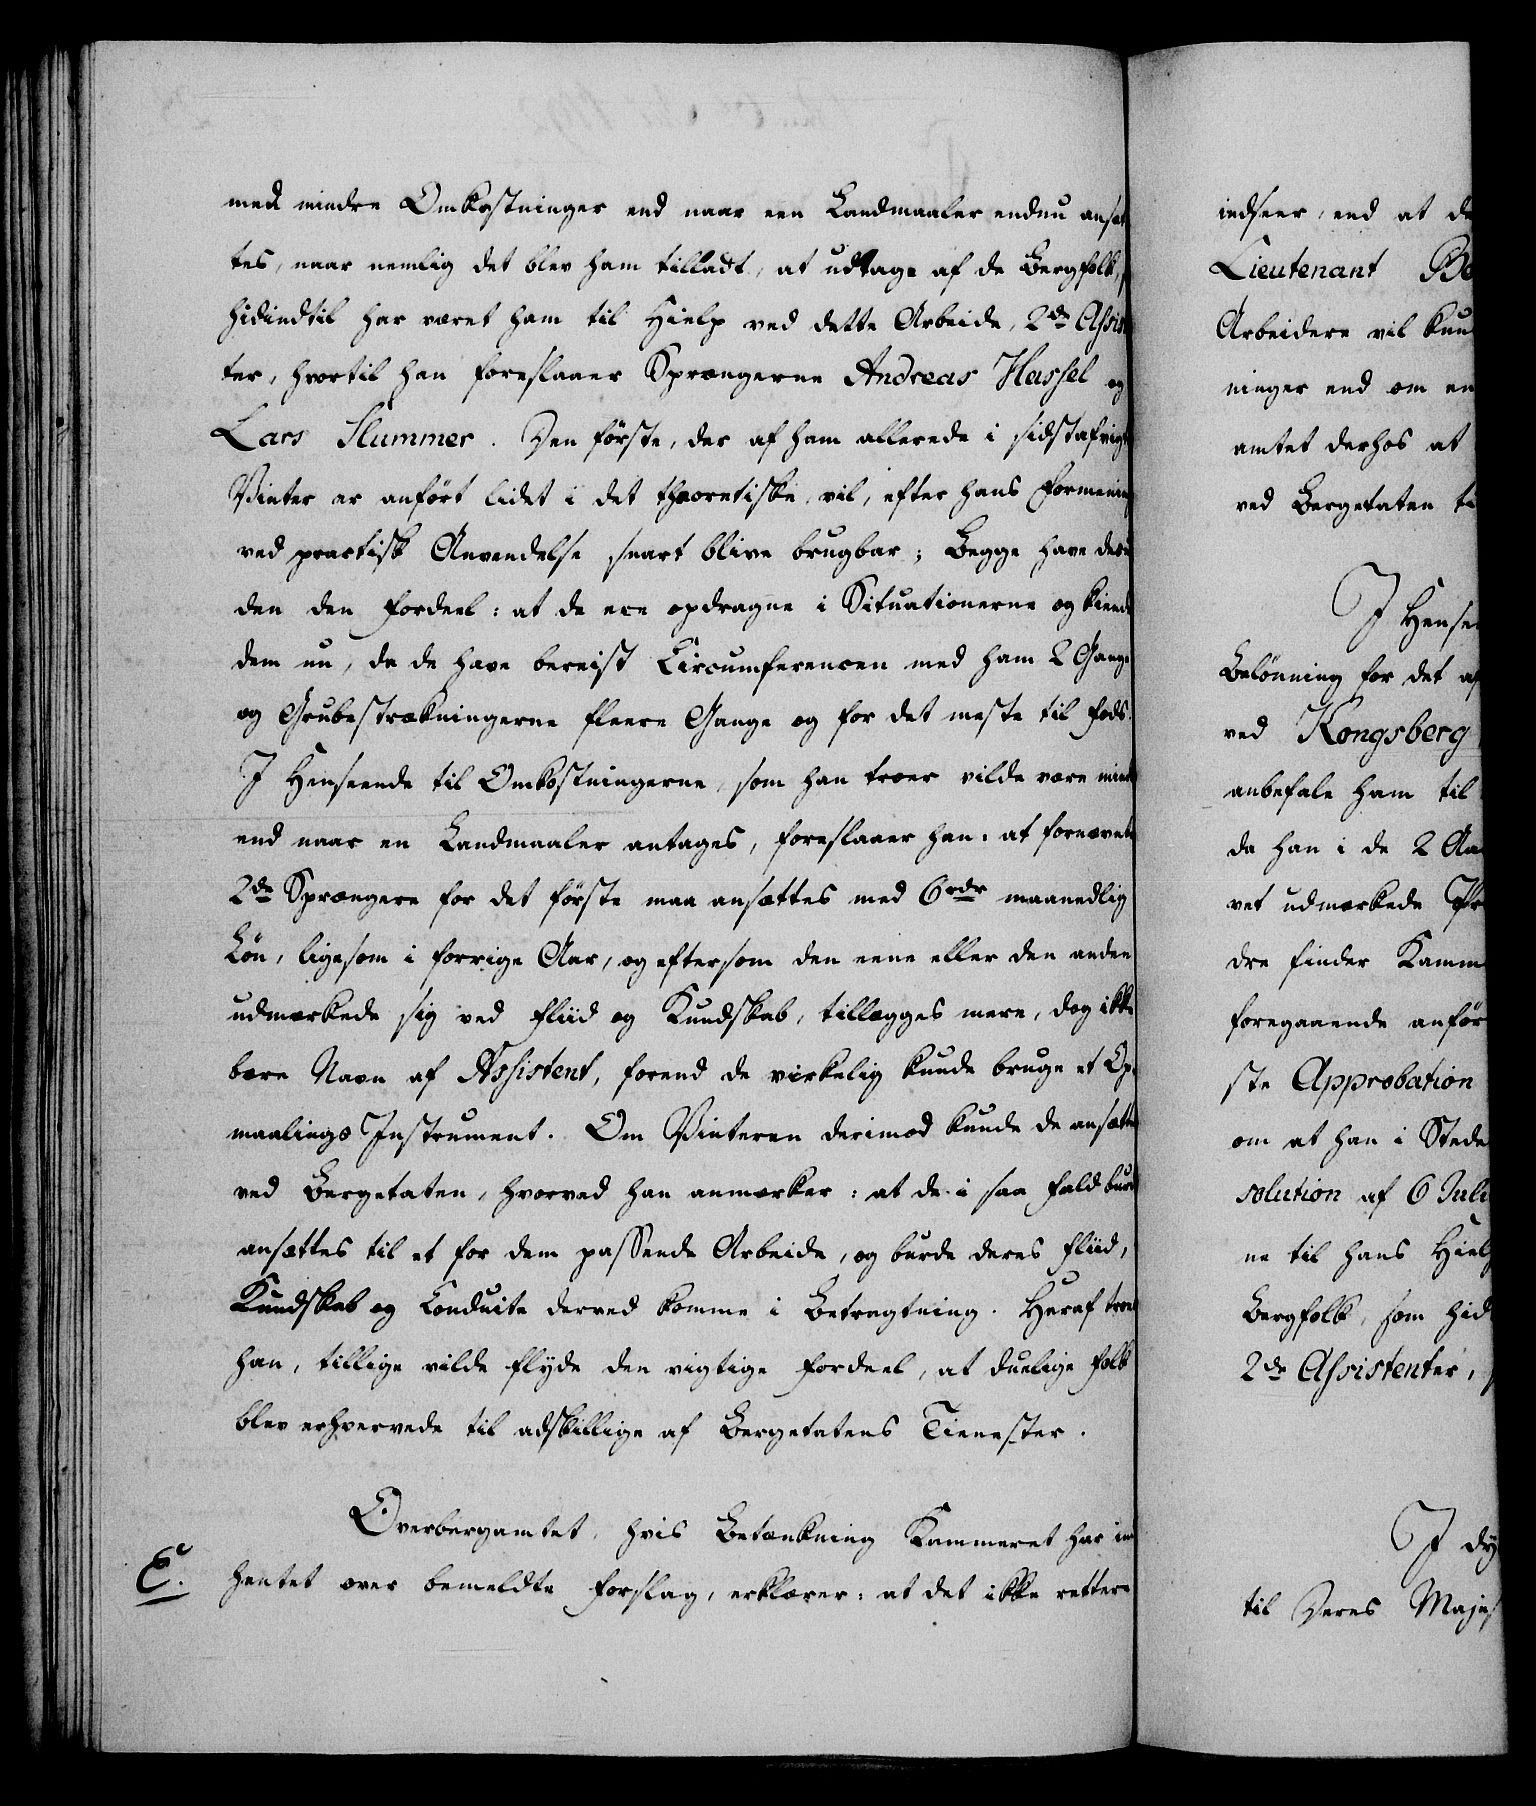 med mindre Omkostninger end naar een Landmaaler endnu ansæt
tes, naar nemlig det blev ham tilladt, at udtage af de Bergfolk,
hidindtil har været ham til Hielp ved dette Arbeide, 2de Assis
ter, hvortil han foreslaaer Sprængerne Andreas Hassel og
Lars Slummer. Den første, der af ham allerede i sidstafvigte
Vinter er anført lidet i det theoretiske, vil, efter hans Formening
ved practisk Anvendelse snart blive brugbar; Begge have desu
den den Fordeel: at de ere opdragne i Situationerne og kiende
dem nu, da de have bereist Circumferencen med ham 2 Gange
og Grubestrækningerne fleere Gange og for det meste til Fods.
I Henseende til Omkostningerne, som han troer vilde være mind
end naar en Landmaaler antages, foreslaaer han: at fornævnte
2de Sprængere for det første maa ansættes med 6 rdr maanedlig
Løn, ligesom i forrige Aar, og eftersom den eene eller den anden
udmærkede sig ved Fliid og Kundskab, tillægges mere, dog ikke
bære Navn af Assistent, forend de virkelig kunde bruge et Op
maalings Instrument. Om Vinteren derimod kunde de ansætte
ved Bergetaten, hvorved han anmærker: at de i saa Fald burd
ansættes til et for dem passende Arbeide, og burde deres Fliid,
Kundskab og Conduite derved komme i Betragtning. Heraf troer
han, tillige vilde flyde den vigtige Fordeel, at duelige Folk
blev erhvervede til adskillige af Bergetatens Tienester.
Overbergamtet, hvis Betænkning Kammeret har ind
C. hentet over bemeldte Forslag, erklærer: at det ikke rettere
indseer, end at de
Lieutenant Be
Arbeidere vil kun
ninger end om en
amtet derhos at
ved Bergetaten ti
I Hense
Belønning for det af
ved Kongsberg
anbefale ham til
da han i de 2 Aa
vet udmærkede Pr
dre finder Kamm
foregaaende anfør
ste Approbation
om at han i Stede
solution af 6 Juli
ne til hans Hielp
Bergfolk, som hid
2de Assistenter,
I dy
til Deres Majes